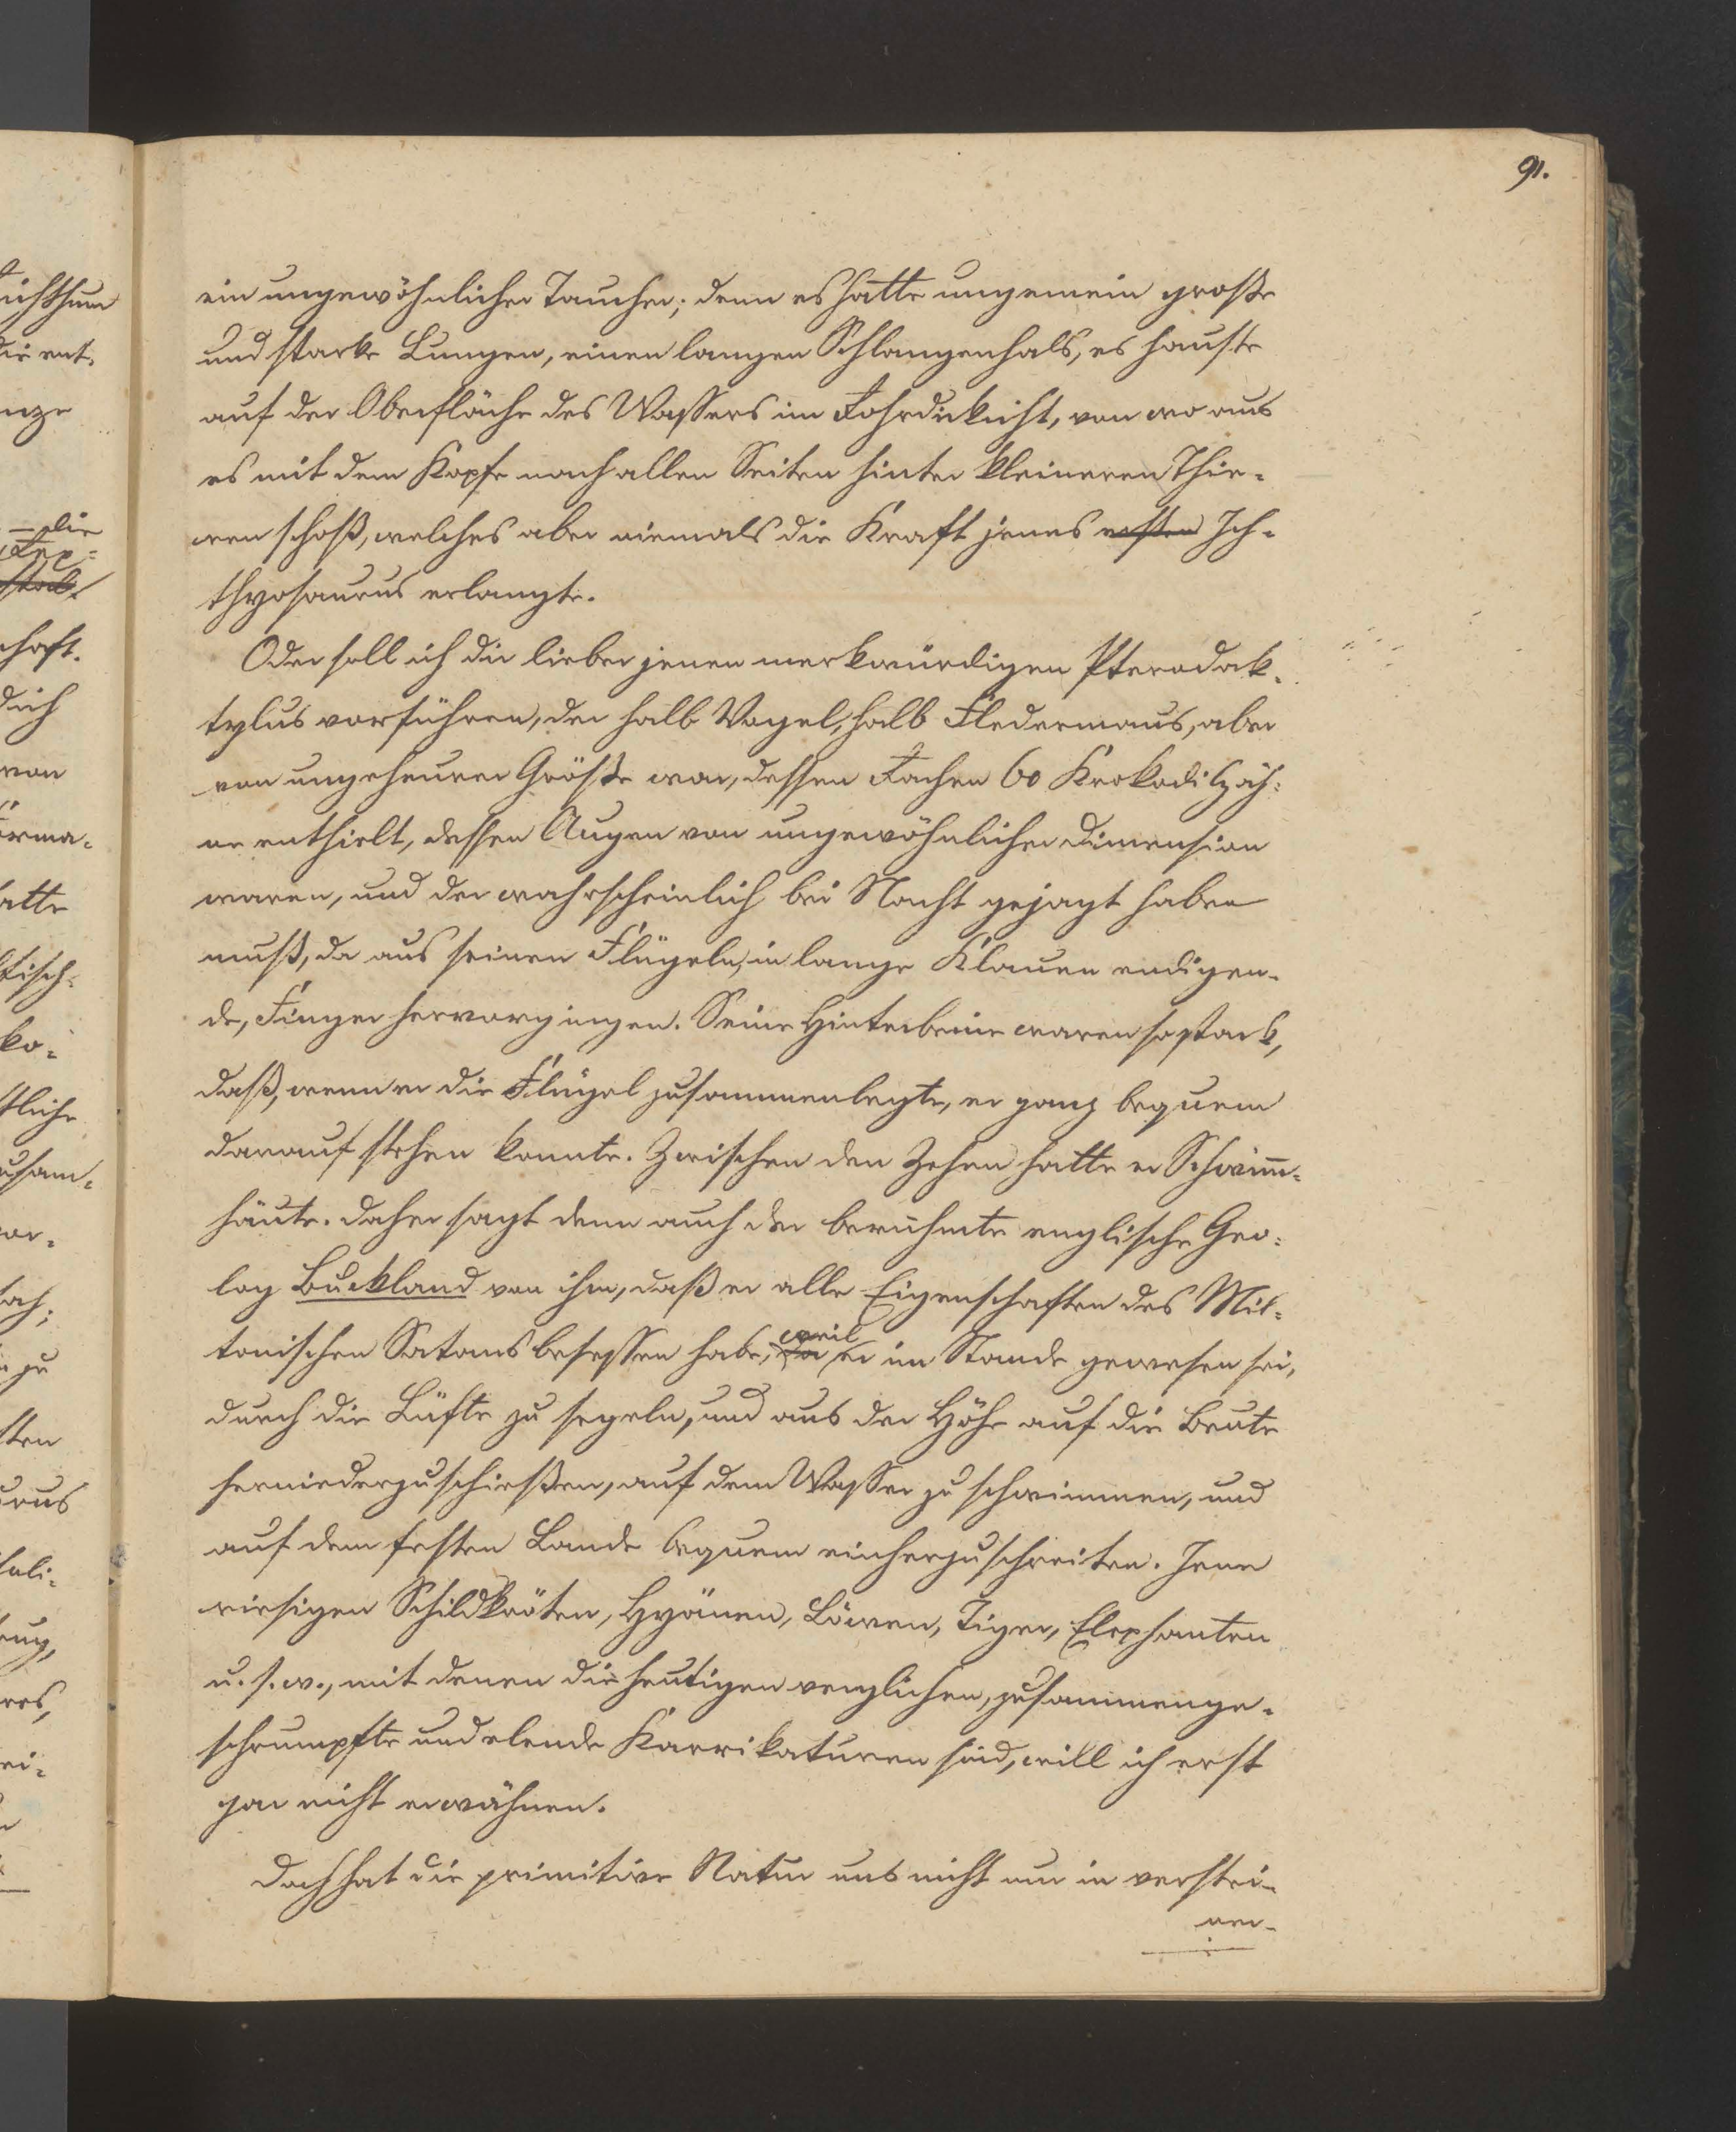 91.
ein ungewöhnlicher Taucher; denn es hatte ungemein große
und starke Lungen, einen langen Schlangenhals, es hauste
auf der Oberfläche des Wassers im Rohrdickicht, von wo aus
es mit dem Kopfe nach allen Seiten hinter kleineren Thie-
ren schoß, welches aber niemals die Kraft jenes ersten Ich-
thyosaurus erlangte.
Oder soll ich dir lieber jenen merkwürdigen Pterodak-
tylus vorführen, der halb Vogel, halb Fledermaus, aber
von ungeheurer Größe war, dessen Rachen 60 Krokodilzäh-
ne enthielt, dessen Augen von ungewöhnlicher Dimension
waren, und der wahrscheinlich bei Nacht gejagt haben
muß, da aus seinen Flügeln, in lange Klauen endigen-
de, Finger hervorgingen. Seine Hinterbeine waren so stark,
daß, wenn er die Flügel zusammenlegte, er ganz bequem
darauf stehen konnte. Zwischen den Zehen hatte er Schwimm-
häute. Daher sagt denn auch der berühmte englische Geo-
log Buckland von ihm, daß er alle Eigenschaften des Mil-
tonischen Satans besessen habe, da weil er im Stande gewesen sei,
durch die Lüfte zu segeln, und aus der Höhe auf die Beute
herniederzuschießen, auf dem Wasser zu schwimmen, und
auf dem festen Lande bequem einherzuschreiten. Jene
riesigen Schildkröten, Hyänen, Löwen, Tiger, Elephanten
u. s. w., mit denen die heutigen verglichen, zusammenge-
schrumpfte und elende Karrikaturen sind, will ich erst
gar nicht erwähnen.
Doch hat die primitive Natur uns nicht nur in verstei-
ner-